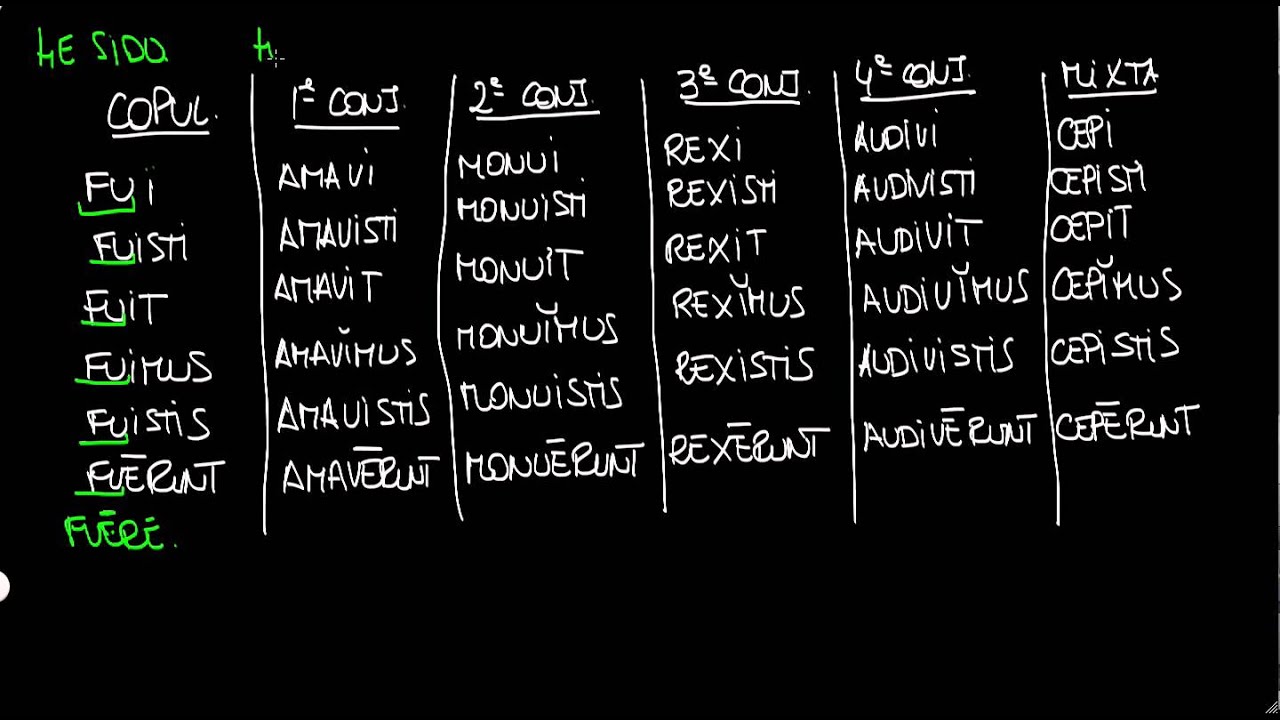 HE SIDO H
COPUL. 1ª CONJ. 2ª CONJ. 3ª CONJ. 4ª CONJ. MIXTA
FUI AMAVI MONUI REXI AUDIVI CEPI
FUISTI AMAVISTI MONUISTI REXISTI AUDIVISTI CEPISTI
FUIT AMAVIT MONUIT REXIT AUDIVIT CEPIT
FUIMUS AMAVĬMUS MONUĬMUS REXĬMUS AUDIVĬMUS CEPĬMUS
FUISTIS AMAVISTIS MONUISTIS REXISTIS AUDIVISTIS CEPISTIS
FUĒRUNT AMAVĒRUNT MONUĒRUNT REXĒRUNT AUDIVĒRUNT CEPĒRUNT
FUĒRĒ.